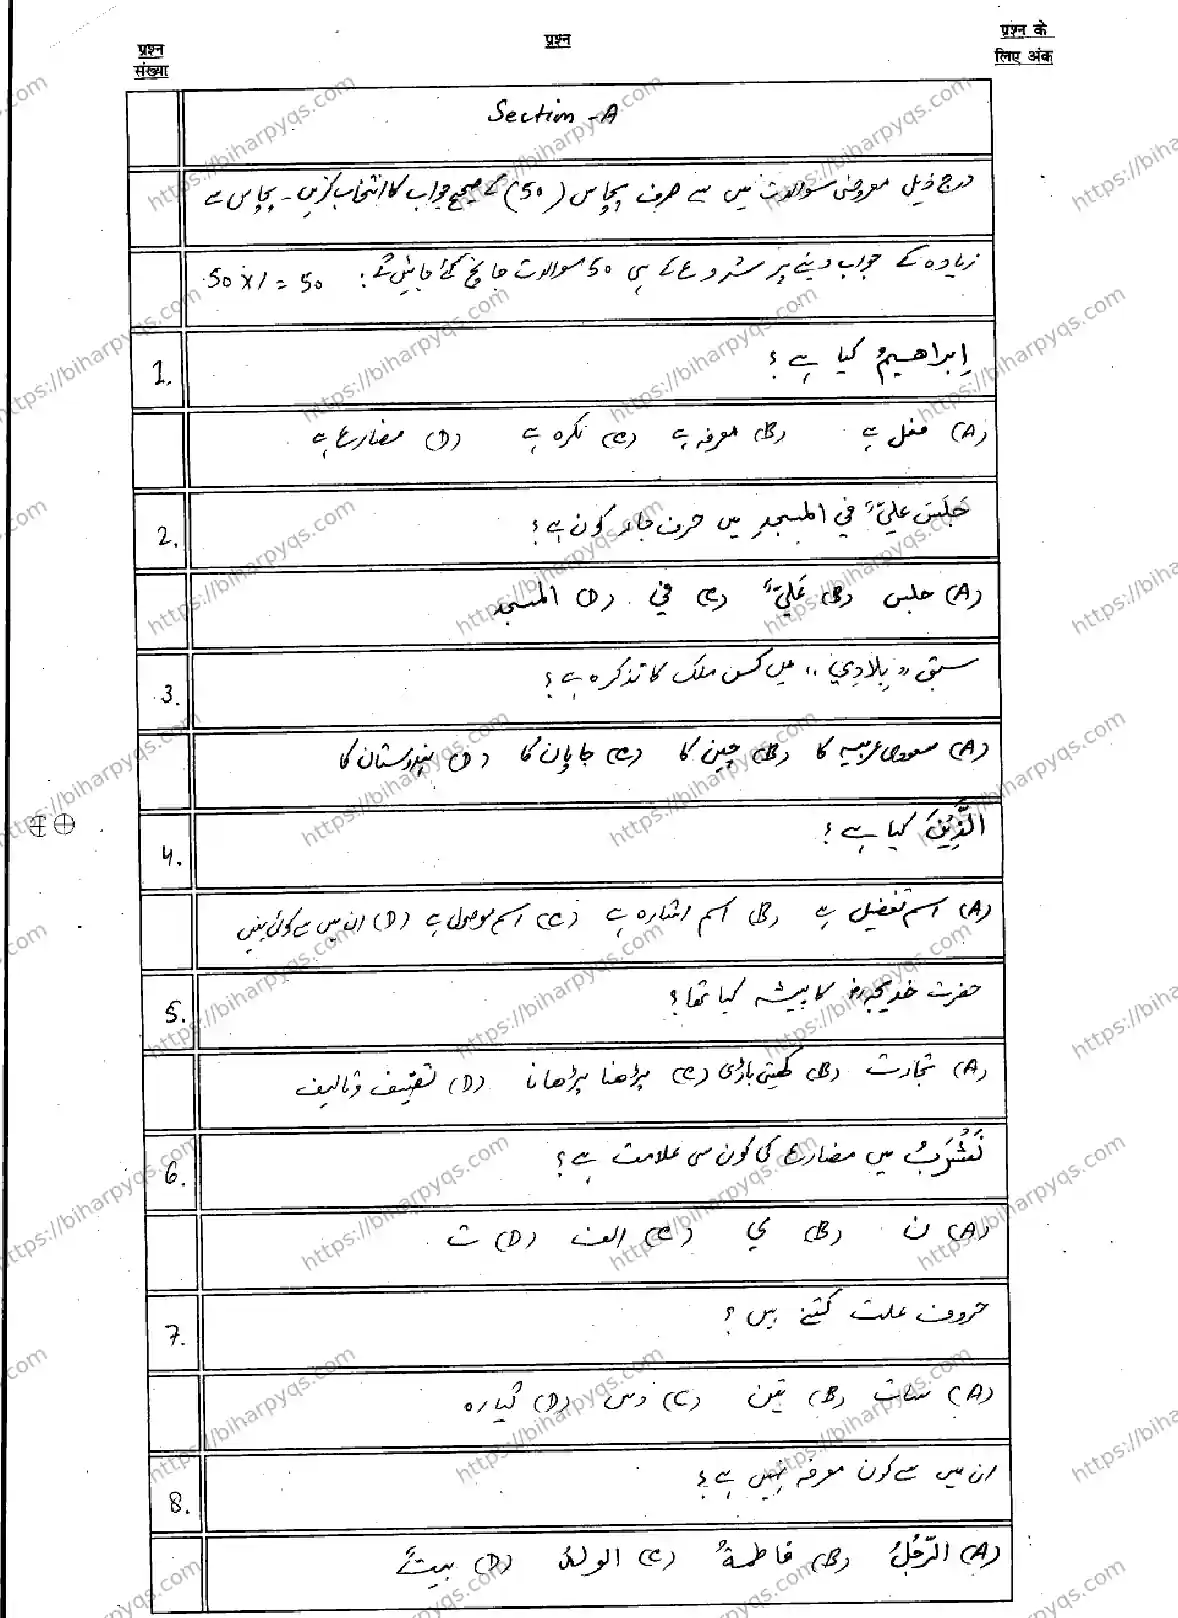 प्रश्न संख्या
प्रश्न
प्रश्न के लिए अंक
Section - A
درج ذیل معروضی سوالات میں سے صرف پچاس (50) کے صحیح جواب کا انتخاب کریں۔ پچاس سے
زیادہ کے جواب دینے پر شروع کے ہی 50 سوالات جانچ کئے جائیں گے: 50 x 1 = 50
1. اِبراھیمُ کیا ہے؟
(A) فعل ہے (B) معرفہ ہے (C) نکرہ ہے (D) مضارع ہے
2. جَلَسَ عليٌّ في المسجدِ میں حرف جار کون ہے؟
(A) جلس (B) عَليٌّ (C) في (D) المسجد
3. سبق "بِلادِي" میں کس ملک کا تذکرہ ہے؟
(A) سعودی عربیہ کا (B) چین کا (C) جاپان کا (D) ہندوستان کا
4. اَلَّذِيْنَ کیا ہے؟
(A) اسم تفضیل ہے (B) اسم اشارہ ہے (C) اسم موصول ہے (D) ان میں سے کوئی نہیں
5. حضرت خدیجہ رض کا پیشہ کیا تھا؟
(A) تجارت (B) کھیتی باڑی (C) پڑھنا پڑھانا (D) تصنیف و تالیف
6. نَشْرَبُ میں مضارع کی کون سی علامت ہے؟
(A) ن (B) ي (C) الف (D) ت
7. حروف علت کتنے ہیں؟
(A) سات (B) تین (C) دس (D) گیارہ
8. ان میں سے کون معرفہ نہیں ہے؟
(A) الرّجُلُ (B) فاطمةُ (C) الولدُ (D) بيتٌ
https://biharpyqs.com